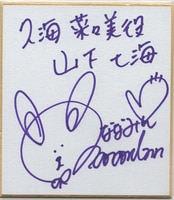 久海 菜々美役
山下 七海
ななみん